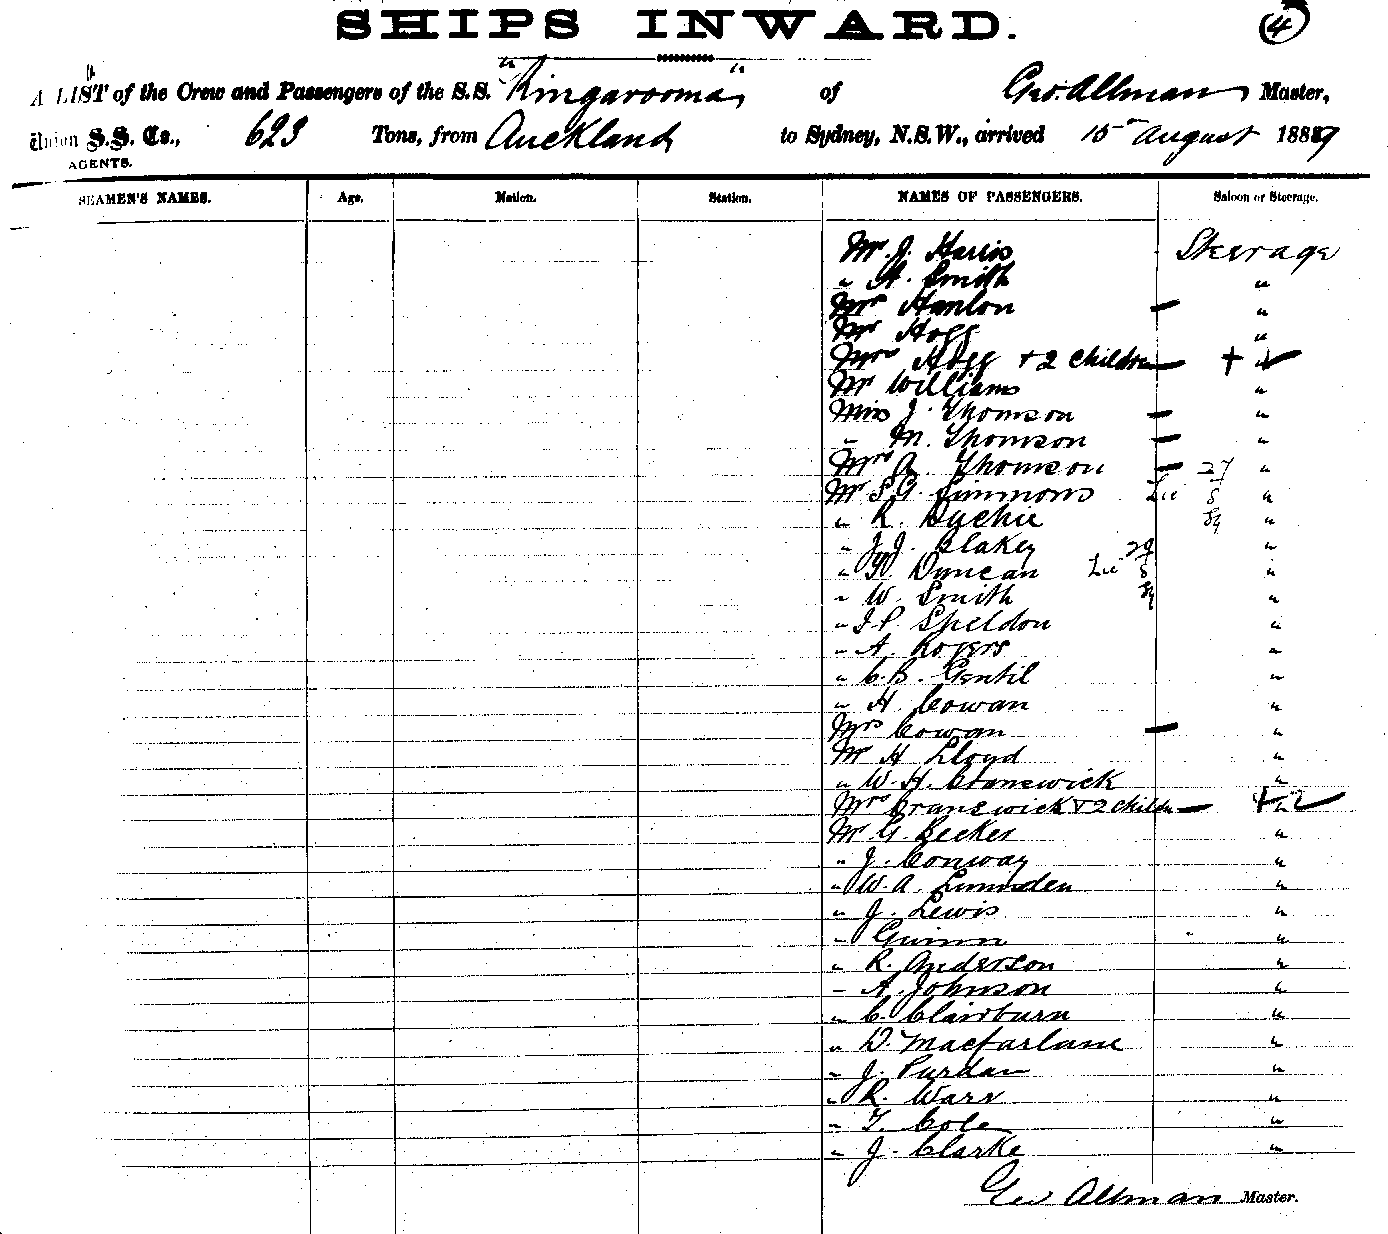 SHIPS INWARD. 4
A LIST of the Crew and Passengers of the S.S. "Ringarooma" of Geo. Allman Master,
Union S.S. Co., 623 Tons, from Auckland to Sydney, N.S.W., arrived 15 August 1889
AGENTS.
SEAMEN'S NAMES. Age. Nation. Station. NAMES OF PASSENGERS. Saloon or Steerage.
Mr. J. Harris Steerage
" A. Smith "
Mrs Hanlon — "
Mr Hogg "
Mrs Hogg + 2 Children — + "
Mr Williams "
Miss J. Thomson — "
" M. Thomson — "
Mrs A. Thomson — 27 "
Mr S. G. Simmons 8 "
" R. Duchie 89 "
" J. J. Blakey 29 "
" G. Duncan 8 "
" W. Smith 89 "
" J. P. Speldon "
" A. Rogers "
" C. B. Gentil "
" H. Cowan "
Mrs Cowan — "
Mr H Lloyd "
" W. H. Cranswick "
Mrs Cranswick + 2 Childn — + 2
Mr G. Becker "
" J. Conway "
" W. A. Lumsden "
" J. Lewis "
" Guinn "
" R. Anderson "
" A. Johnson "
" C. Clairburn "
" D. Macfarlane "
" J. Purdan "
" R. Warr "
" T. Cole "
" J. Clarke "
Geo Allman Master.